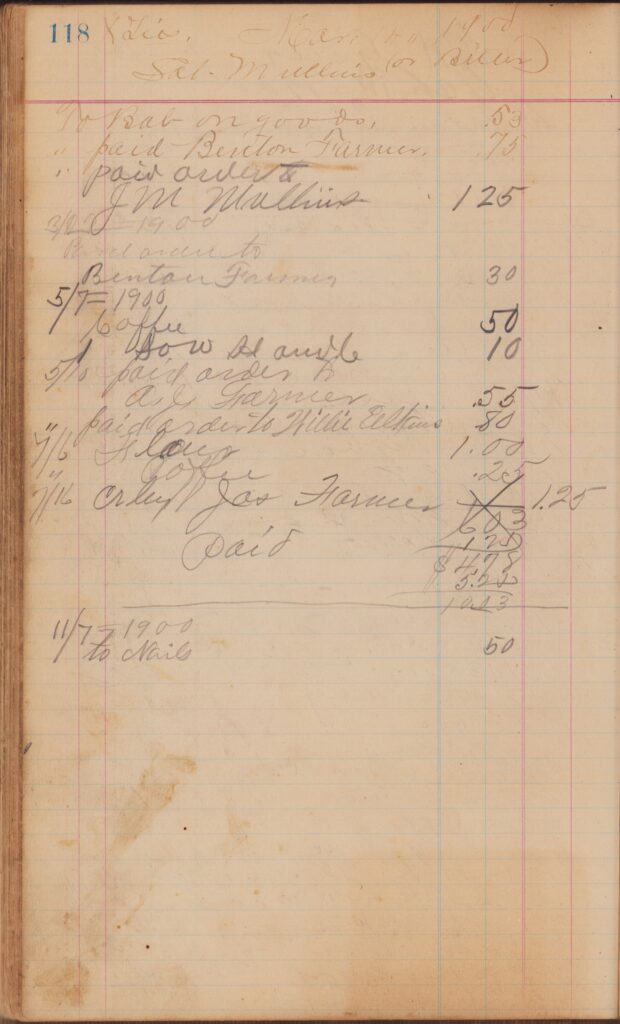 118 Mar 1900
Sal. Mullins (or Biler)
To Bab on goods, .53
" paid Benton Farmer. .75
" paid order to
J M Mullins 125
3/27 = 1900
Paid order to
Benton Farmer 30
5/7 = 1900
Coffee 50
1 Saw Handle 10
5/10 paid order to
Farmer .55
" paid order to Willie Elkins .80
7/6 Flour 1.00
" Coffee .25
7/16 Cr by Jas Farmer 1.25
603
Paid 1.25
$478
5.25
10.03
11/7 = 1900
to Nails 50